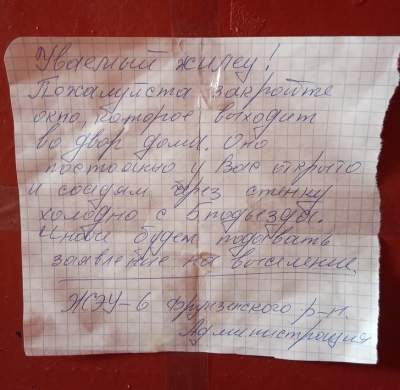 Уваемый жилец!
Пожалуйста закройте
окно, которое выходит
во двор дома. Оно
постоянно у Вас открыто
и соседям через стенку
холодно с 5 подъезды.
Иначе будем подовать
заявление на выселение.
ЖЭУ-6 Фрунзенского р-н.
Администрация